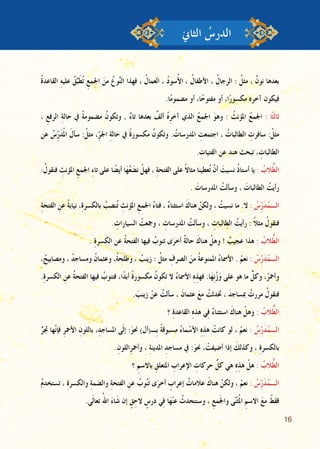 الدرسُ الثاني
بعدها نونٌ ، مثلُ : الرجالُ ، الأطفالُ ، الأُسودُ ، العمالُ ، فهذا النَّوعُ مِنَ الجمعِ تُطَبَّقُ عليه القاعدةُ
فيكون آخره مكسورًا، أو مفتوحًا، أو مضمومًا.
ثالثا : الجمعُ المؤنثُ : وهوَ الجمعُ الذي آخرُهُ ألفٌ بعدها تاءٌ , وتكونُ مضمومةً في حالةِ الرفعِ ،
مثلُ: سافرتِ الطالباتُ، اجتمعتِ المدرساتُ. وتكونُ مكسورةً في حالةِ الجرِّ، مثلُ: سألَ المُدَرِّسُ عن
الطالباتِ, تبحث هند عن الفتياتِ.
الطُّلَّابُ : يا أستاذُ نسيتَ أنْ تُعطينا مثالاً على الفتحةِ , فهلْ نَضَعُهَا أيضًا على تاءِ الجمعِ المؤنثِ فنقولُ:
رأيتُ الطالباتَ ، وسألتُ المدرساتَ .
المُدَرِّسُ : لا. ما نسيتُ ، ولكنْ هناكَ استثناءٌ ، فتاءُ الجمعِ المؤنثِ تُنصبُ بالكسرةِ، نيابةً عنِ الفتحةِ
فنقولُ مثلاً : رأيتُ الطالباتِ ، وسألتُ المدرساتِ ، وجمعتُ السياراتِ.
الطُّلَّابُ : هذا عجيبٌ ! وهلْ هناكَ حالةٌ أخرَى تنوبُ فيها الفتحةُ عنِ الكسرةِ .
المُدَرِّسُ : نعمْ . الأسماءُ الممنوعةُ منَ الصرفِ مثلُ : زينبُ ، وطلحةُ، وعثمانُ ومساجدُ ، ومصابيحُ,
وأحمرُ، وكلُّ ما هو على وَزْنِهَا. فهذِهِ الأسماءُ لا تكونُ مكسورةً أبدًا، فتنوبُ فيها الفتحةُ عنِ الكسرةِ.
فنقولُ مررتُ بمساجدَ ، تحدثتُ معَ عثمانَ ، سألتُ عنْ زينبَ.
الطُّلَّابُ : وهلْ هناكَ استثناءٌ في هذه القاعدةِ ؟
المُدَرِّسُ : نعمْ ، لو كانتْ هذهِ الأسماءُ مسبوقةً بـ(أل) نحوَ: إلى المساجدِ، باللونِ الأحمرِ فإنّها تُجرُّ
بالكسرةِ ، وكذلكَ إذا أضيفتْ, نحوَ: في مساجدِ المدينةِ , وأحمرِ اللونِ.
الطُّلَّابُ : هلْ هذه هي كلُّ حركاتِ الإعرابِ المتعلقةِ بالاسمِ ؟
المُدَرِّسُ : نعمْ , ولكنْ هناكَ علاماتُ إعرابٍ أخرَى تنُوبُ عنِ الفتحةِ والضمةِ والكسرةِ ، تستخدمُ
فقطْ معَ الاسمِ المُثَنَّى والجمعِ ، وسنتحدثُ عَنْهَا في درسٍ لاحقٍ إن شَاءَ اللهُ تعالَى.
16